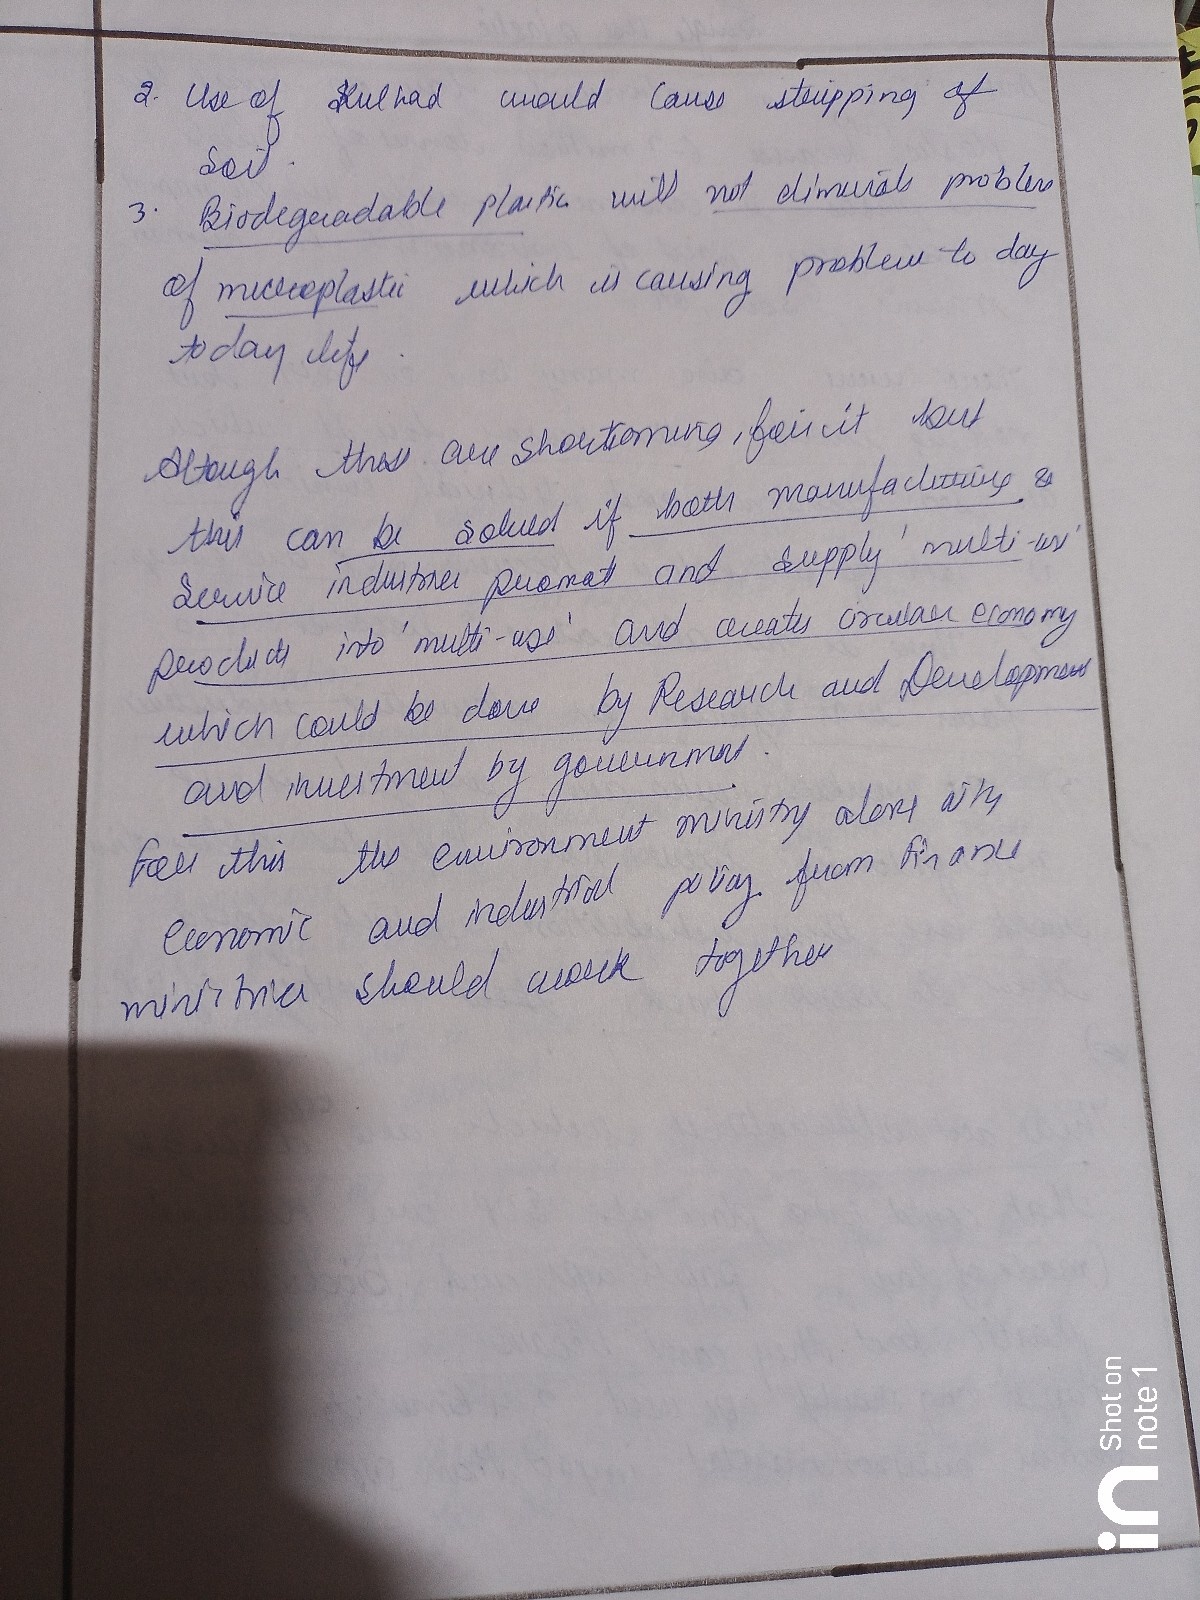 2. Use of Kulhad would cause stripping of
Soil.
3. Biodegradable plastic will not dimurals problem
of microplastic which is causing problem to day
to day life.
Altough this are shortcoming, for it but
this can be solved if both manufacturing &
Service industries promot and supply 'multi-use'
products into 'multi-use' and creates circular economy
which could be done by Research and Development
and investment by governmet.
For this the environment ministry along with
economic and industrial policy from Finance
ministries should work together
Shot on
note 1
in